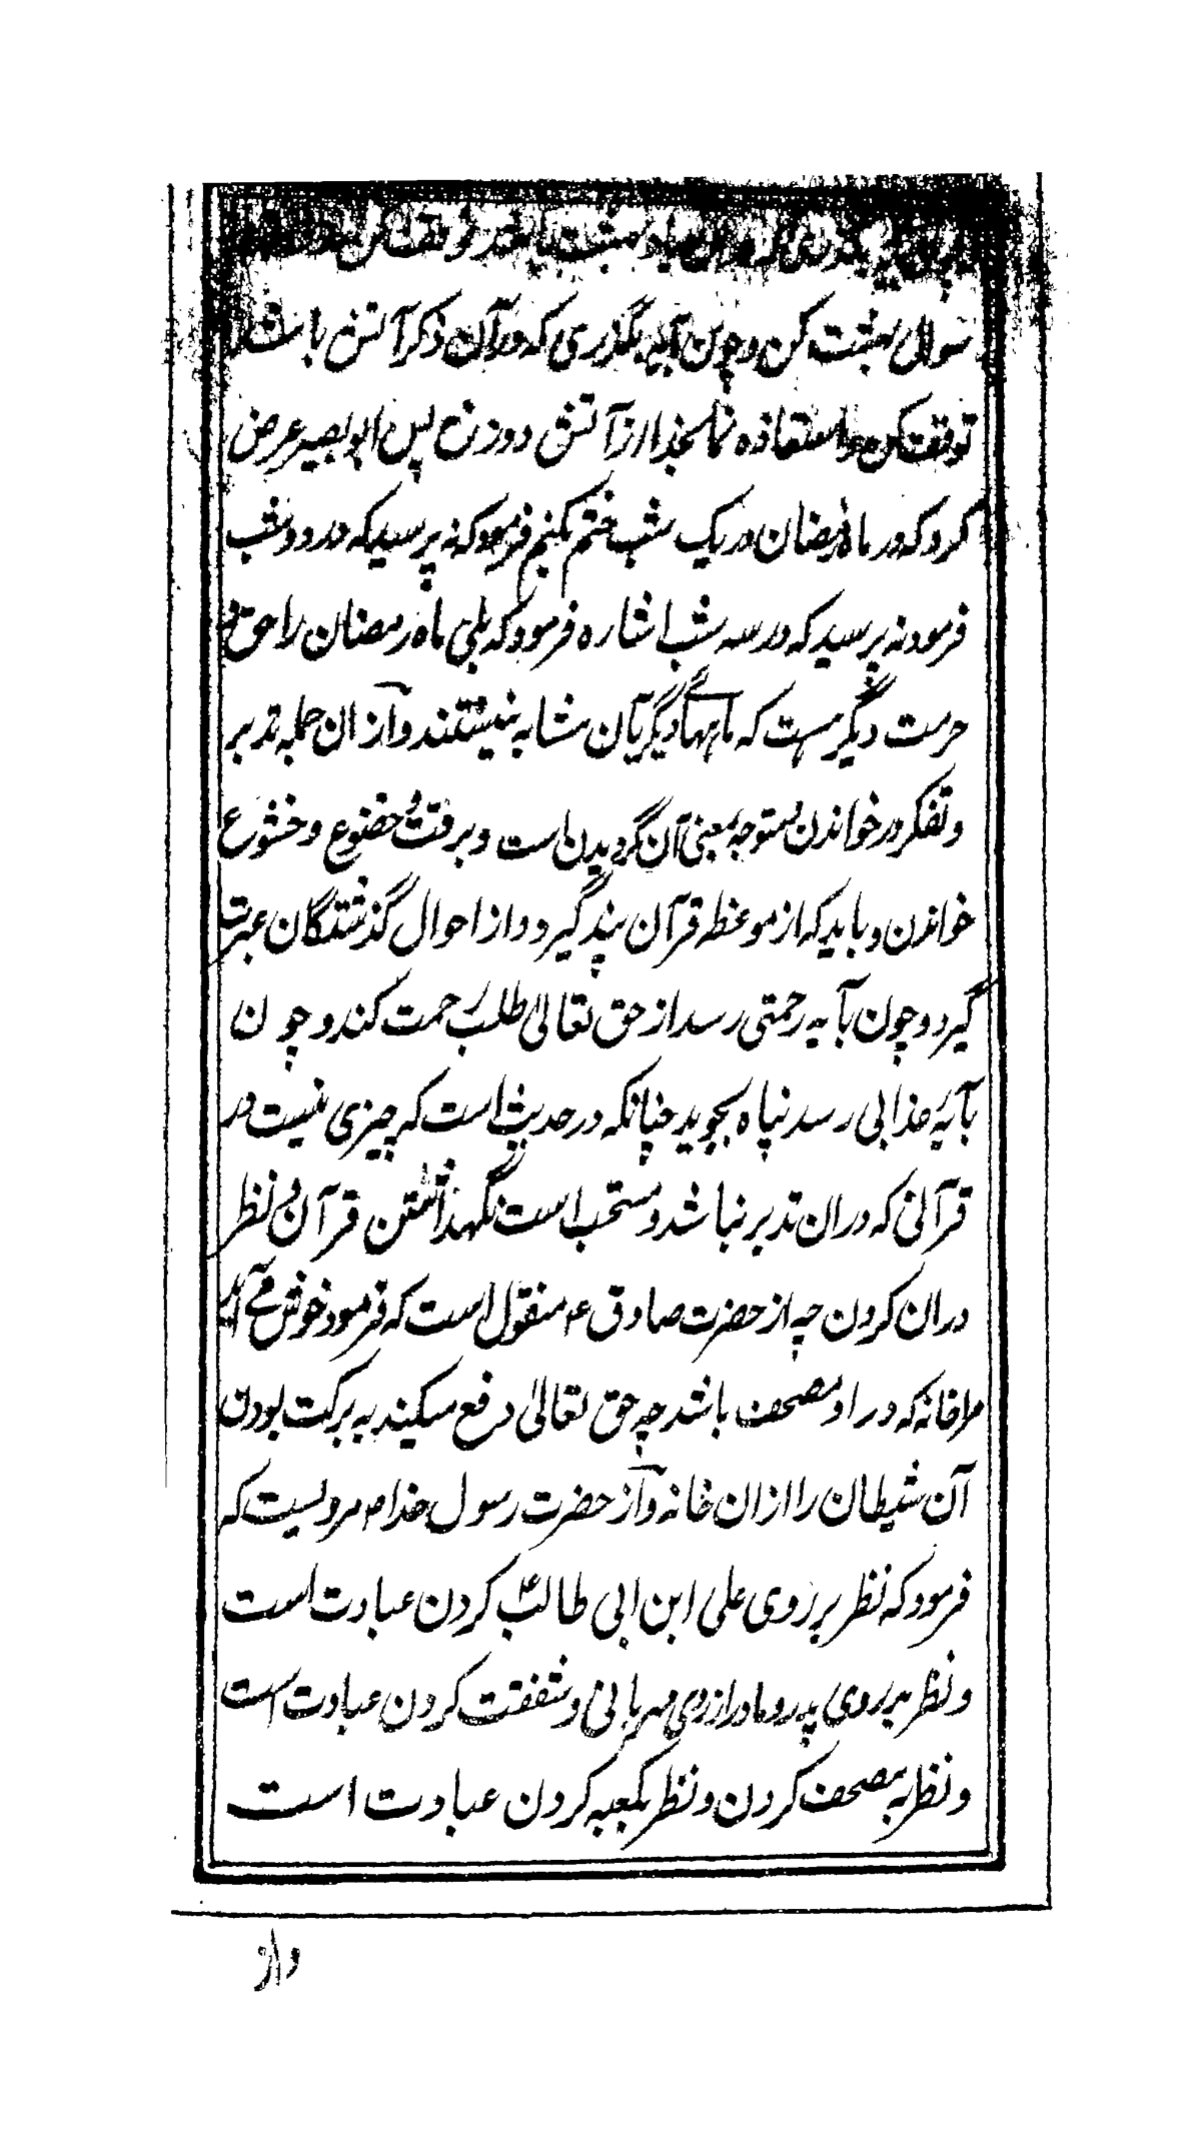 یاد بهشت باشد توقف کن
سوال بهشت کن و چون بآیه بگذری که در آن ذکر آتش باشد
توقف کن و استعاذه نما بخدا از آتش دوزخ پس ابو بصیر عرض
کرد که در ماه رمضان در یک شب ختم بکنم فرمود که نه پرسید که در دو شب
فرمود نه پرسید که در سه شب اشاره فرمود که بلی ماه رمضان را حق و
حرمت دیگر هست که ماههای دیگر بآن مشابه نیستند و از ان جمله تدبر
و تفکر در خواندن و متوجه بمعنی آن گردیدن است و برقت و خضوع و خشوع
خواندن و باید که از موعظه قرآن پند گیرد و از احوال گذشتگان عبرت
گیرد و چون بآیه رحمتی رسد از حق تعالیٰ طلب رحمت کند و چون
بآیهٔ عذابی رسد پناه بجوید چنانکه در حدیث است که چیزی نیست در
قرآنی که دران تدبر نباشد و مستحب است نگهداشتن قرآن و نظر
دران کردن چه از حضرت صادق ع منقول است که فرمود خوش می آید
مرا خانه که در او مصحف باشد چه حق تعالیٰ دفع میکند به برکت بودن
آن شیطان را از ان خانه و از حضرت رسول خدا ص مرویست که
فرمود که نظر بر روی علی ابن ابی طالب ع کردن عبادت است
و نظر بر روی پدر و مادر از روی مهربانی و شفقت کردن عبادت است
و نظر به مصحف کردن و نظر بکعبه کردن عبادت است
و از